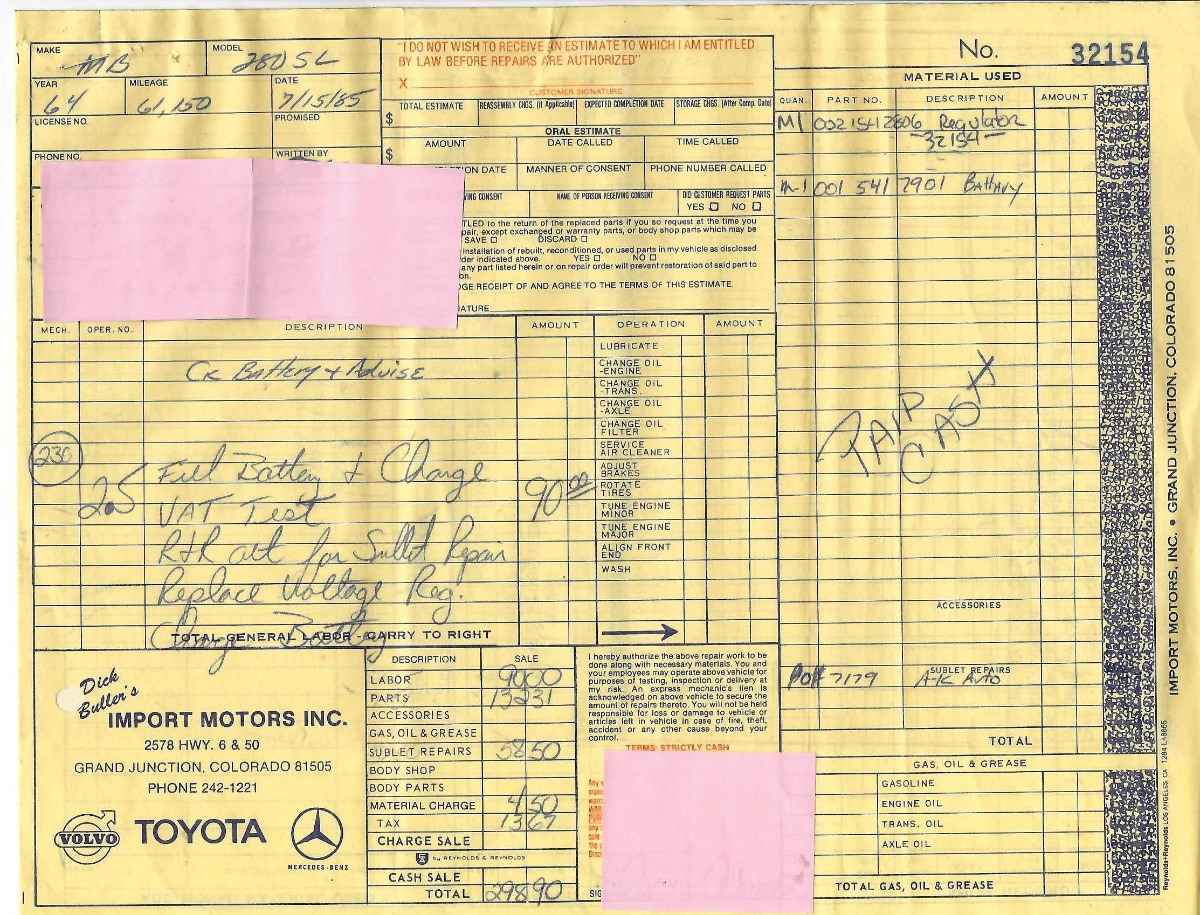 MAKE MB
MODEL 280 SL
YEAR 64
MILEAGE 61,150
DATE 7/15/85
LICENSE NO.
PROMISED
PHONE NO.
WRITTEN BY
"I DO NOT WISH TO RECEIVE AN ESTIMATE TO WHICH I AM ENTITLED
BY LAW BEFORE REPAIRS ARE AUTHORIZED"
X
CUSTOMER SIGNATURE
TOTAL ESTIMATE REASSEMBLY CHGS. (if Applicable) EXPECTED COMPLETION DATE STORAGE CHGS. (After Comp. Date)
$
ORAL ESTIMATE
AMOUNT DATE CALLED TIME CALLED
$
ION DATE MANNER OF CONSENT PHONE NUMBER CALLED
VING CONSENT NAME OF PERSON RECEIVING CONSENT DID CUSTOMER REQUEST PARTS
YES NO
TLED to the return of the replaced parts if you so request at the time you
pair, except exchanged or warranty parts, or body shop parts which may be
SAVE DISCARD
installation of rebuilt, reconditioned, or used parts in my vehicle as disclosed
der indicated above. YES NO
any part listed herein or on repair order will prevent restoration of said part to
on.
DGE RECEIPT OF AND AGREE TO THE TERMS OF THIS ESTIMATE.
ATURE
No. 32154
MATERIAL USED
QUAN. PART NO. DESCRIPTION AMOUNT
M1 002 154 2806 Regulator
32154
M-1 001 541 7901 Battery
PAID
CASH
ACCESSORIES
SUBLET REPAIRS
PO# 7179 A-K Auto
TOTAL
GAS, OIL & GREASE
GASOLINE
ENGINE OIL
TRANS. OIL
AXLE OIL
TOTAL GAS, OIL & GREASE
MECH. OPER. NO. DESCRIPTION AMOUNT OPERATION AMOUNT
CK Battery & Advise
230
2.5 Fill Battery & Charge 90 00
VAT Test
R+R alt for Sublet Repair
Replace Voltage Reg.
Charge Battery
LUBRICATE
CHANGE OIL
-ENGINE
CHANGE OIL
-TRANS.
CHANGE OIL
-AXLE
CHANGE OIL
FILTER
SERVICE
AIR CLEANER
ADJUST
BRAKES
ROTATE
TIRES
TUNE ENGINE
MINOR
TUNE ENGINE
MAJOR
ALIGN FRONT
END
WASH
TOTAL GENERAL LABOR - CARRY TO RIGHT
Dick
Buller's
IMPORT MOTORS INC.
2578 HWY. 6 & 50
GRAND JUNCTION, COLORADO 81505
PHONE 242-1221
VOLVO TOYOTA
MERCEDES-BENZ
DESCRIPTION SALE
LABOR 90 00
PARTS 132 31
ACCESSORIES
GAS, OIL & GREASE
SUBLET REPAIRS 58 50
BODY SHOP
BODY PARTS
MATERIAL CHARGE 4 50
TAX 13 67
CHARGE SALE
by REYNOLDS & REYNOLDS
CASH SALE
TOTAL 298 90
I hereby authorize the above repair work to be
done along with necessary materials. You and
your employees may operate above vehicle for
purposes of testing, inspection or delivery at
my risk. An express mechanic's lien is
acknowledged on above vehicle to secure the
amount of repairs thereto. You will not be held
responsible for loss or damage to vehicle or
articles left in vehicle in case of fire, theft,
accident or any other cause beyond your
control.
TERMS: STRICTLY CASH
SIG
IMPORT MOTORS, INC. • GRAND JUNCTION, COLORADO 81505
Reynolds+Reynolds LOS ANGELES, CA 1284 LA8865